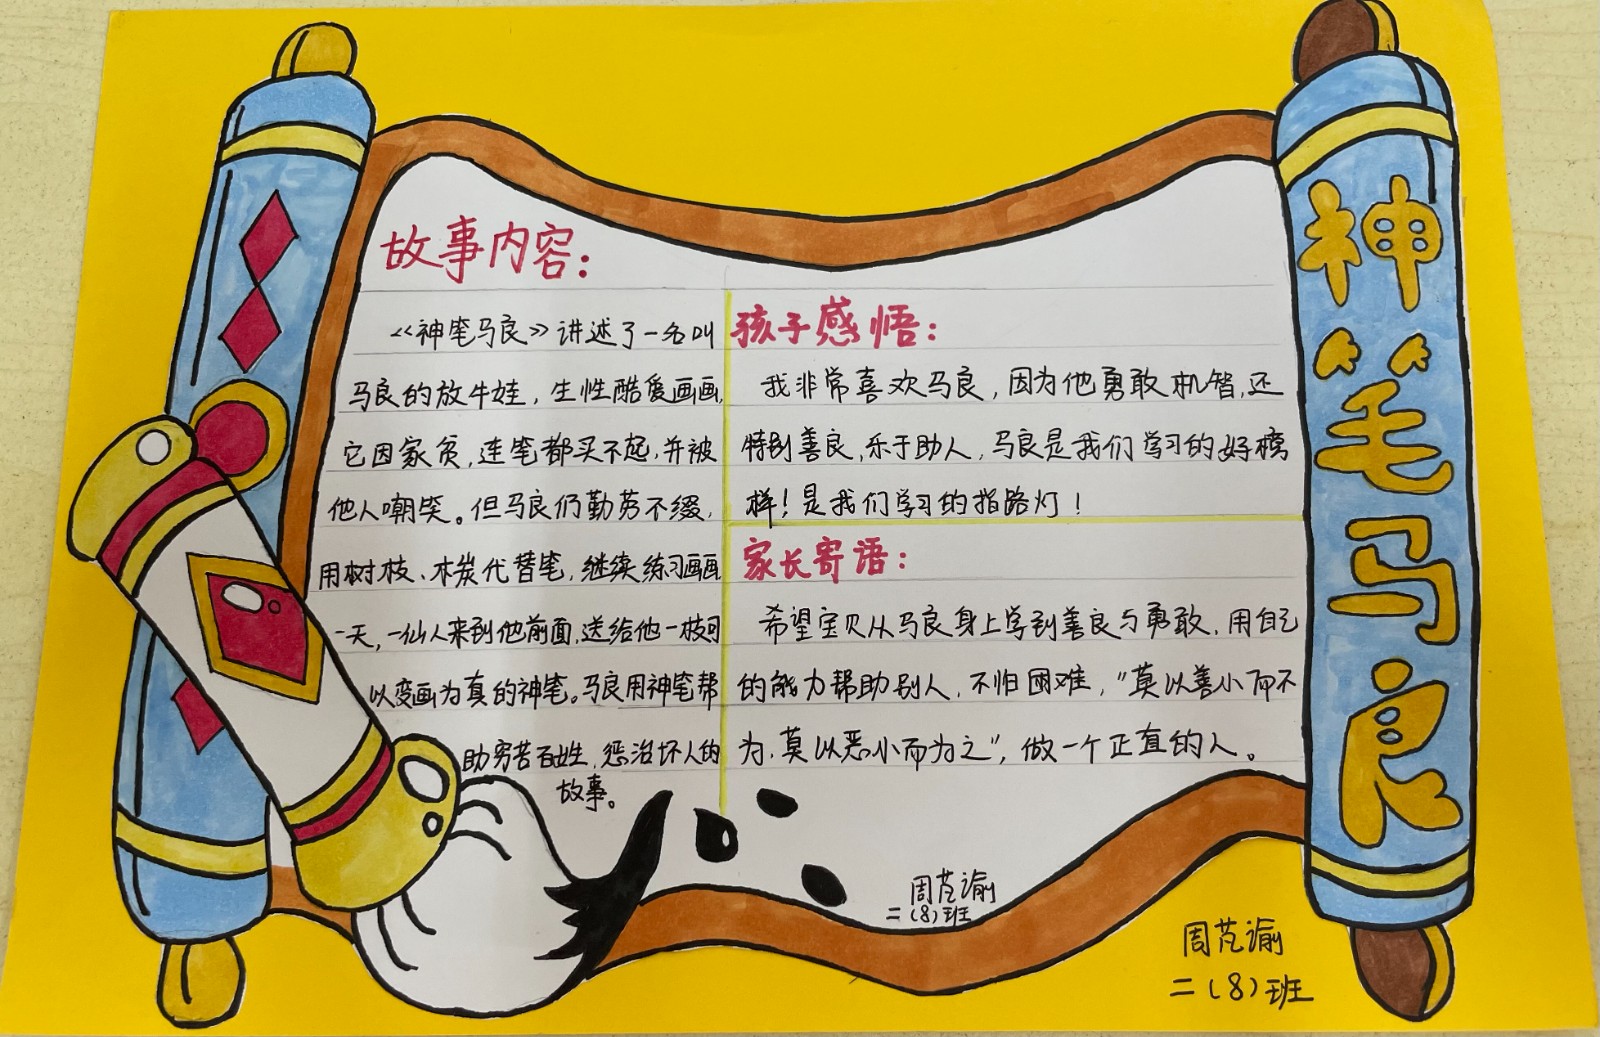 故事内容：
《神笔马良》讲述了一名叫
马良的放牛娃，生性酷爱画画，
它因家贫，连笔都买不起，并被
他人嘲笑。但马良仍勤劳不缀，
用树枝、木炭代替笔，继续练习画画
一天，一仙人来到他前面，送给他一枝可
以变画为真的神笔。马良用神笔帮
助穷苦百姓，惩治坏人的
故事。
孩子感悟：
我非常喜欢马良，因为他勇敢机智，还
特别善良，乐于助人，马良是我们学习的好榜
样！是我们学习的指路灯！
家长寄语：
希望宝贝从马良身上学到善良与勇敢，用自己
的能力帮助别人，不怕困难，“莫以善小而不
为，莫以恶小而为之”，做一个正直的人。
周芃谕
二（8）班
神笔马良
周芃谕
二（8）班